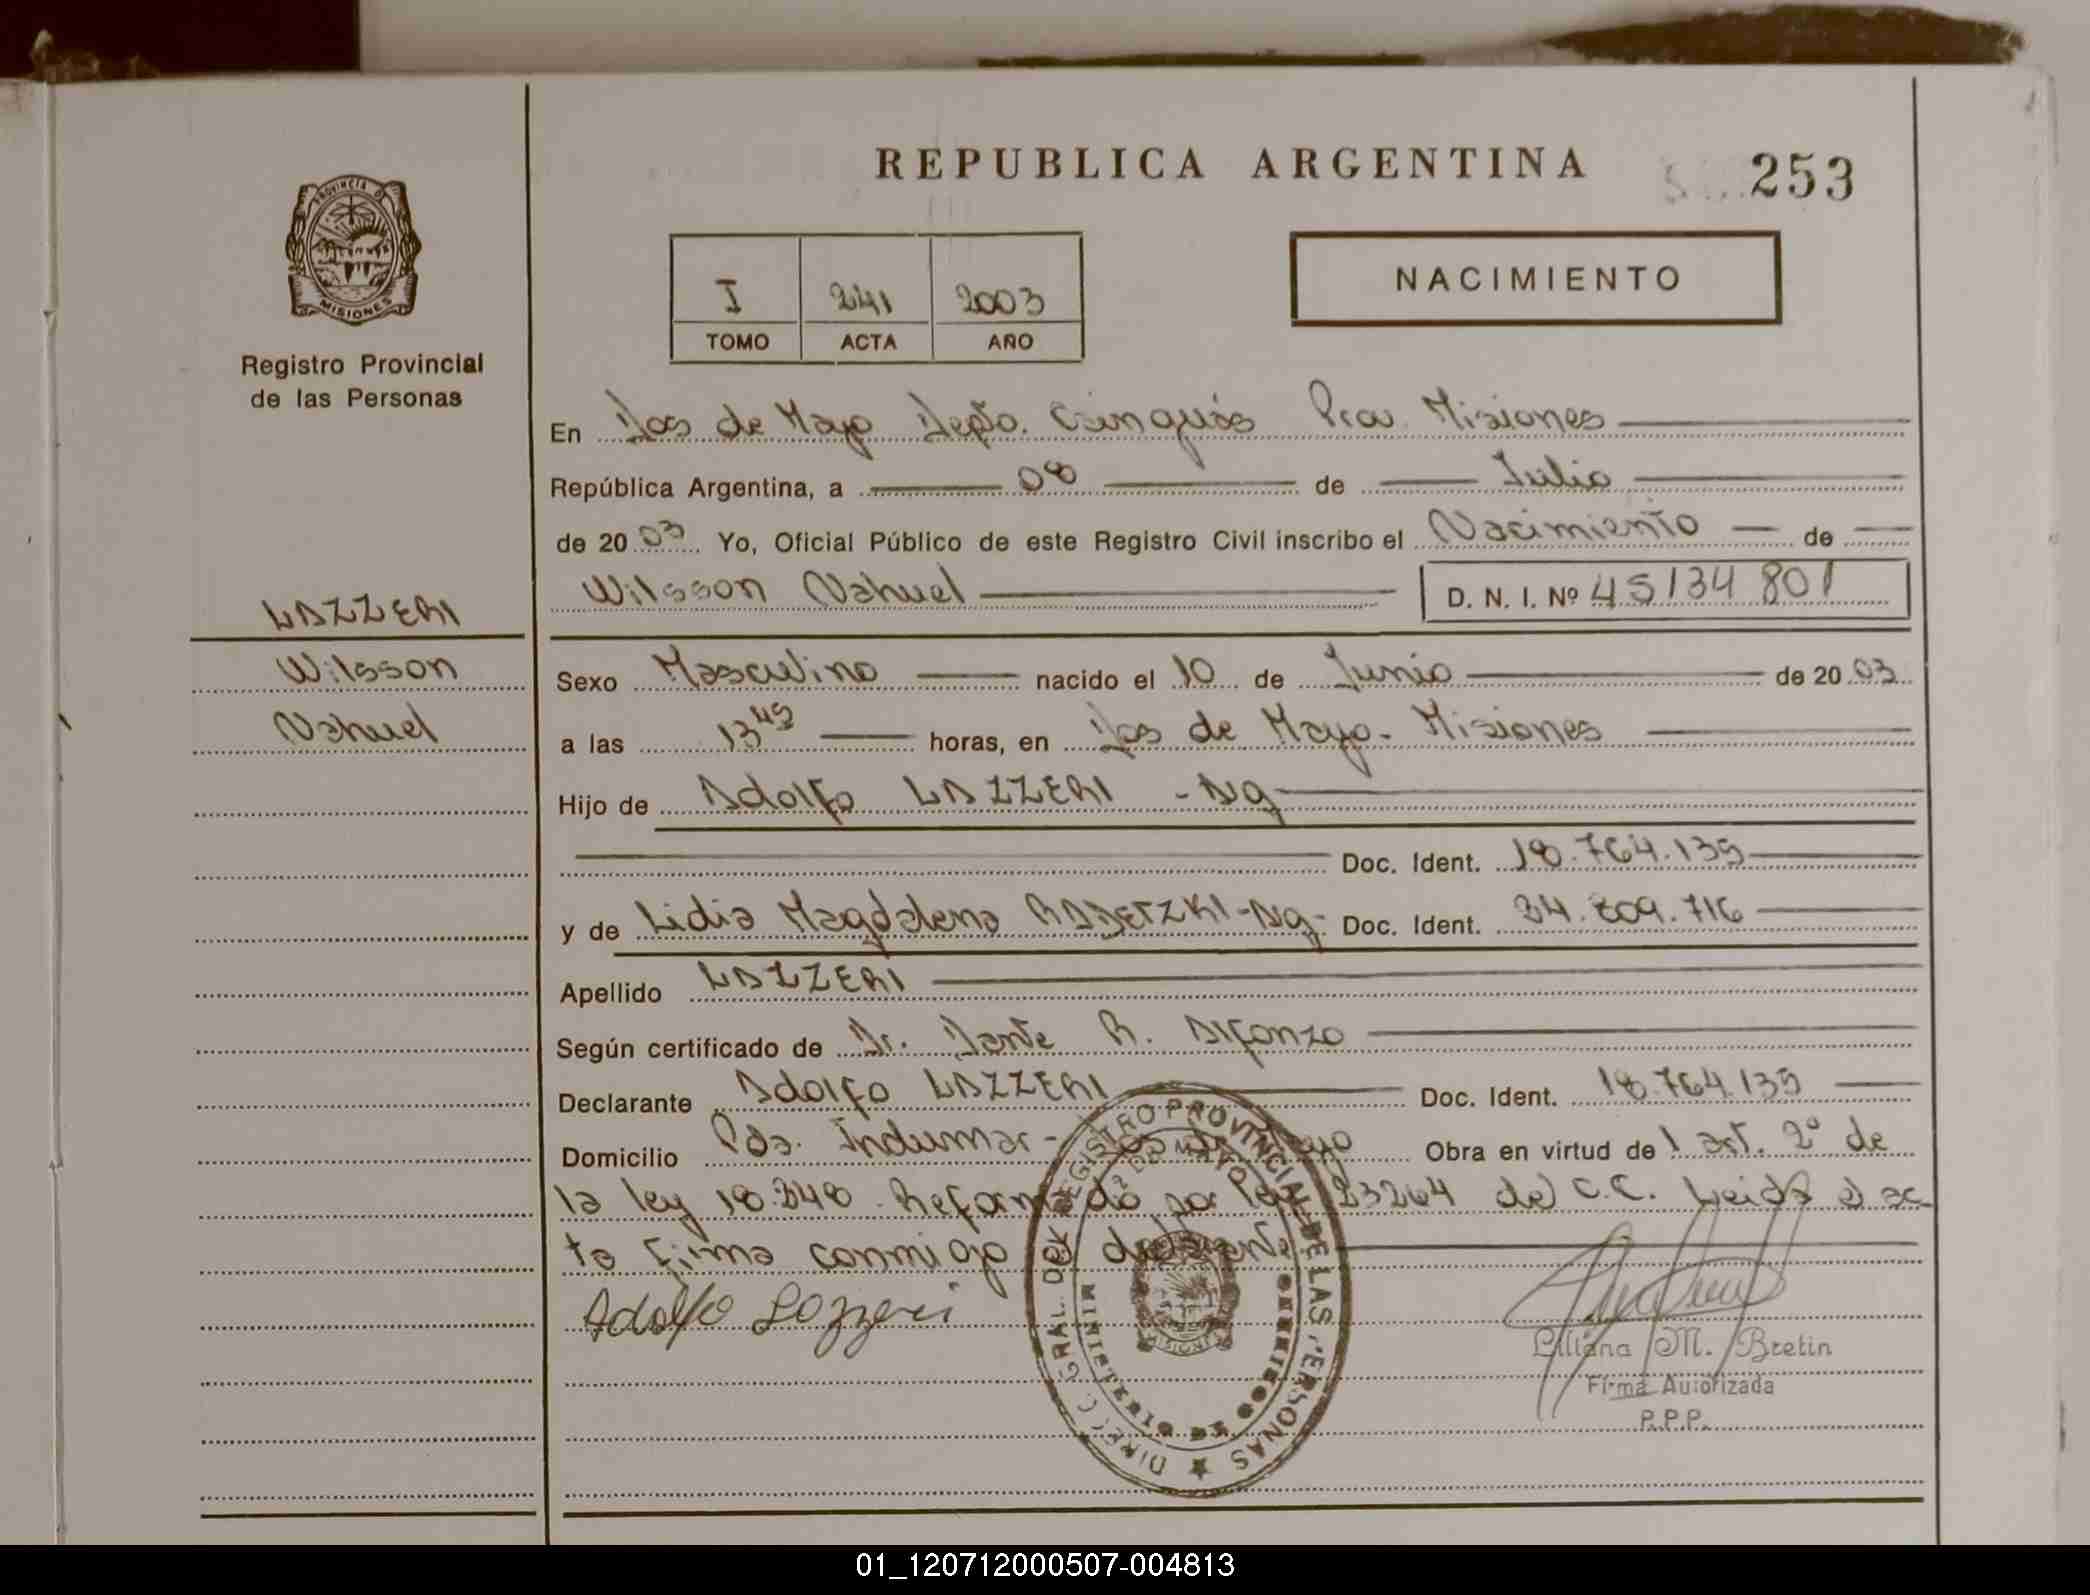 REPUBLICA ARGENTINA
253
PROVINCIA DE
MISIONES
Registro Provincial
de las Personas
I 241 2003
TOMO ACTA AÑO
NACIMIENTO
En Dos de Mayo Depto. Cainguás Prov. Misiones
República Argentina, a 08 de Julio
de 2003. Yo, Oficial Público de este Registro Civil inscribo el Nacimiento de
Wilsson Nahuel D. N. I. Nº 45134 801
LAZZERI
Wilsson
Nahuel
Sexo Masculino nacido el 10 de Junio de 2003
a las 13 45 horas, en Dos de Mayo- Misiones
Hijo de Adolfo LAZZERI -Ag
Doc. Ident. 18.764.135
y de Lidia Magdalena RADETZKI-Ag- Doc. Ident. 34.809.716
Apellido LAZZERI
Según certificado de Dr. Dante R. Alfonzo
Declarante Adolfo LAZZERI Doc. Ident. 18.764.135
Domicilio Pda. Indumar- Dos de Mayo Obra en virtud de l art. 2º de
la ley 18.248 Reformado por Ley 23264 del C.C. Leida el ac
ta firma conmigo el declarante
Adolfo Lazzeri
DIRECC. GRAL. DEL REGISTRO PROVINCIAL DE LAS PERSONAS
Liliana M. Bretin
Firma Autorizada
P.P.P.
01_120712000507-004813